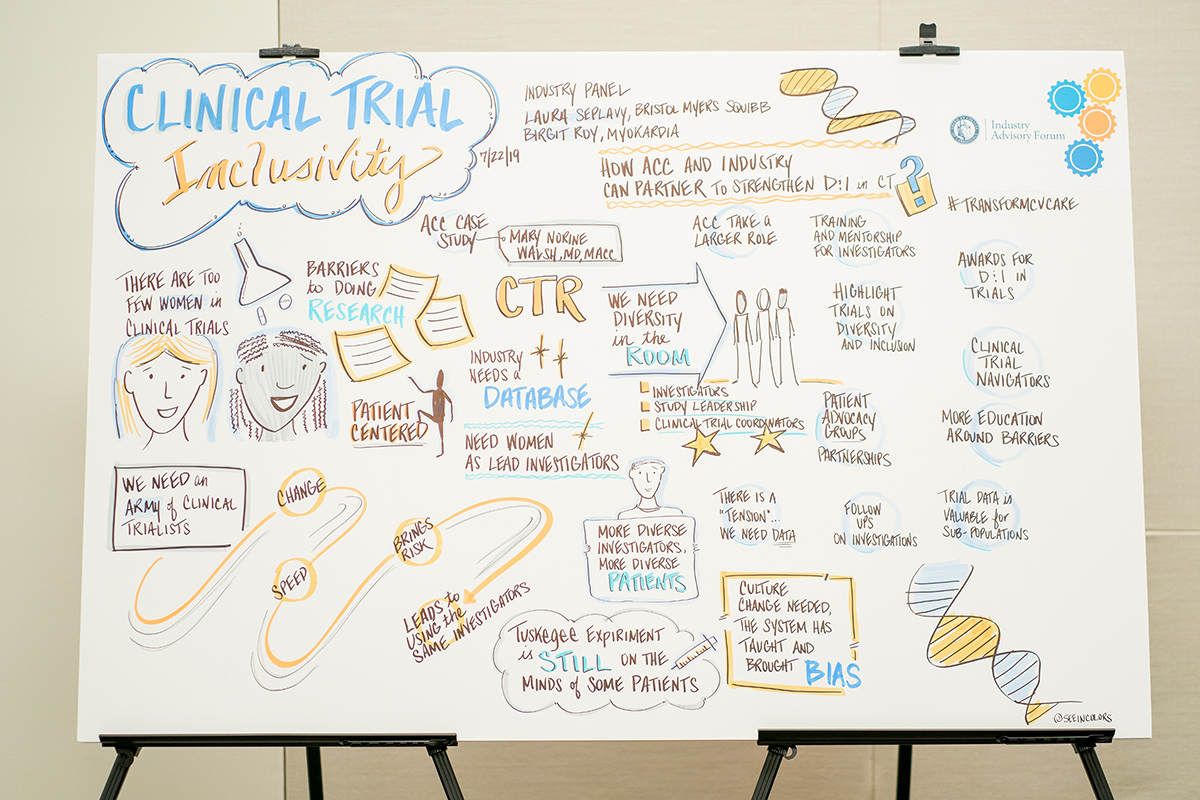 CLINICAL TRIAL
Inclusivity
7/22/19
INDUSTRY PANEL
LAURA SEPLAVY, BRISTOL MYERS SQUIBB
BIRGIT ROY, MYOKARDIA
HOW ACC AND INDUSTRY
CAN PARTNER TO STRENGTHEN D:I in CT
?
Industry
Advisory Forum
#TRANSFORMCVCARE
THERE ARE TOO
FEW WOMEN in
CLINICAL TRIALS
BARRIERS
to DOING
RESEARCH
PATIENT
CENTERED
ACC CASE
STUDY
MARY NORINE
WALSH, MD, MACC
CTR
INDUSTRY
NEEDS a
DATABASE
NEED WOMEN
AS LEAD INVESTIGATORS
WE NEED
DIVERSITY
in the
ROOM
INVESTIGATORS
STUDY LEADERSHIP
CLINICAL TRIAL COORDINATORS
ACC TAKE a
LARGER ROLE
TRAINING
AND MENTORSHIP
FOR INVESTIGATORS
AWARDS FOR
D:I IN
TRIALS
HIGHLIGHT
TRIALS ON
DIVERSITY
AND INCLUSION
CLINICAL
TRIAL
NAVIGATORS
PATIENT
ADVOCACY
GROUPS
PARTNERSHIPS
MORE EDUCATION
AROUND BARRIERS
WE NEED an
ARMY of CLINICAL
TRIALISTS
CHANGE
SPEED
BRINGS
RISK
LEADS to
USING the
SAME INVESTIGATORS
MORE DIVERSE
INVESTIGATORS,
MORE DIVERSE
PATIENTS
THERE IS A
"TENSION"...
WE NEED DATA
FOLLOW
UPS
ON INVESTIGATIONS
TRIAL DATA is
VALUABLE for
SUB-POPULATIONS
TUSKEGEE EXPIRIMENT
is STILL ON THE
MINDS of SOME PATIENTS
CULTURE
CHANGE NEEDED,
THE SYSTEM HAS
TAUGHT AND
BROUGHT BIAS
@SEEINCOLORS